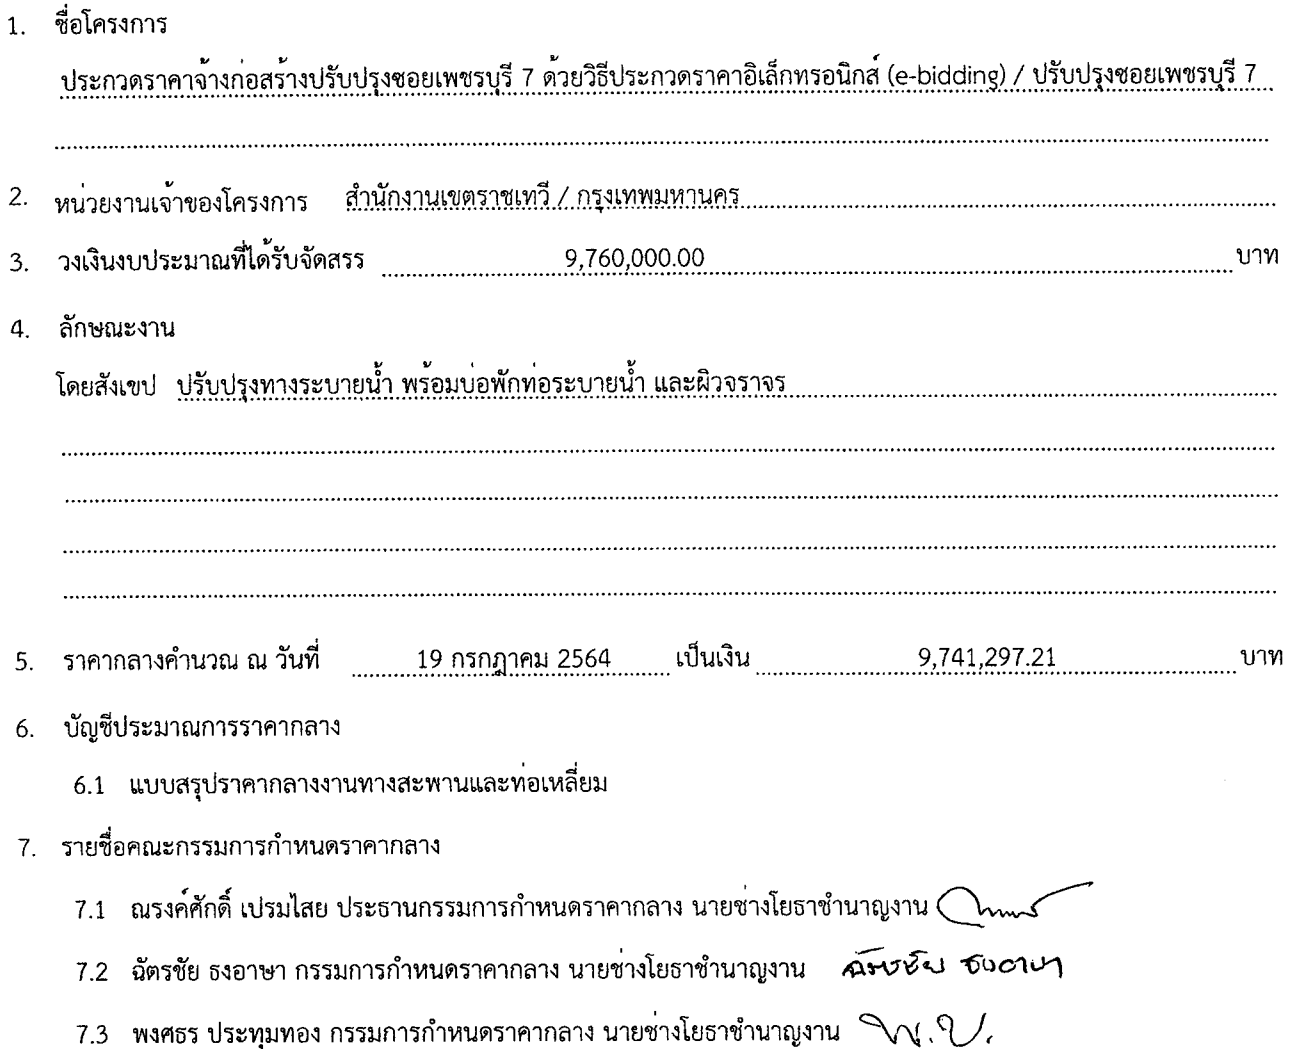 1. ชื่อโครงการ
ประกวดราคาจ้างก่อสร้างปรับปรุงซอยเพชรบุรี 7 ด้วยวิธีประกวดราคาอิเล็กทรอนิกส์ (e-bidding) / ปรับปรุงซอยเพชรบุรี 7
2. หน่วยงานเจ้าของโครงการ สำนักงานเขตราชเทวี / กรุงเทพมหานคร
3. วงเงินงบประมาณที่ได้รับจัดสรร 9,760,000.00 บาท
4. ลักษณะงาน
โดยสังเขป ปรับปรุงทางระบายน้ำ พร้อมบ่อพักท่อระบายน้ำ และผิวจราจร
5. ราคากลางคำนวณ ณ วันที่ 19 กรกฎาคม 2564 เป็นเงิน 9,741,297.21 บาท
6. บัญชีประมาณการราคากลาง
6.1 แบบสรุปราคากลางงานทางสะพานและท่อเหลี่ยม
7. รายชื่อคณะกรรมการกำหนดราคากลาง
7.1 ณรงค์ศักดิ์ เปรมไสย ประธานกรรมการกำหนดราคากลาง นายช่างโยธาชำนาญงาน
7.2 ฉัตรชัย ธงอาษา กรรมการกำหนดราคากลาง นายช่างโยธาชำนาญงาน ฉัตรชัย ธงอาษา
7.3 พงศธร ประทุมทอง กรรมการกำหนดราคากลาง นายช่างโยธาชำนาญงาน พ.ป.